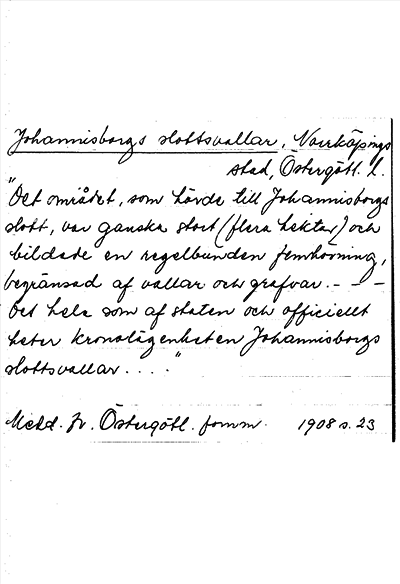 Johannisborgs slottsvallar, Norrköpings
stad, Östergötl. l.
"Det området, som hörde till Johannisborgs
slott, var ganska stort (flera hektar) och
bildade en regelbunden femhörning,
begränsad af vallar och grafvar. - - -
Det hela som af staten och officiellt
heter kronolägenheten Johannisborgs
slottsvallar . . . ."
Medd. fr. Östergötl. fornm. 1908 s. 23